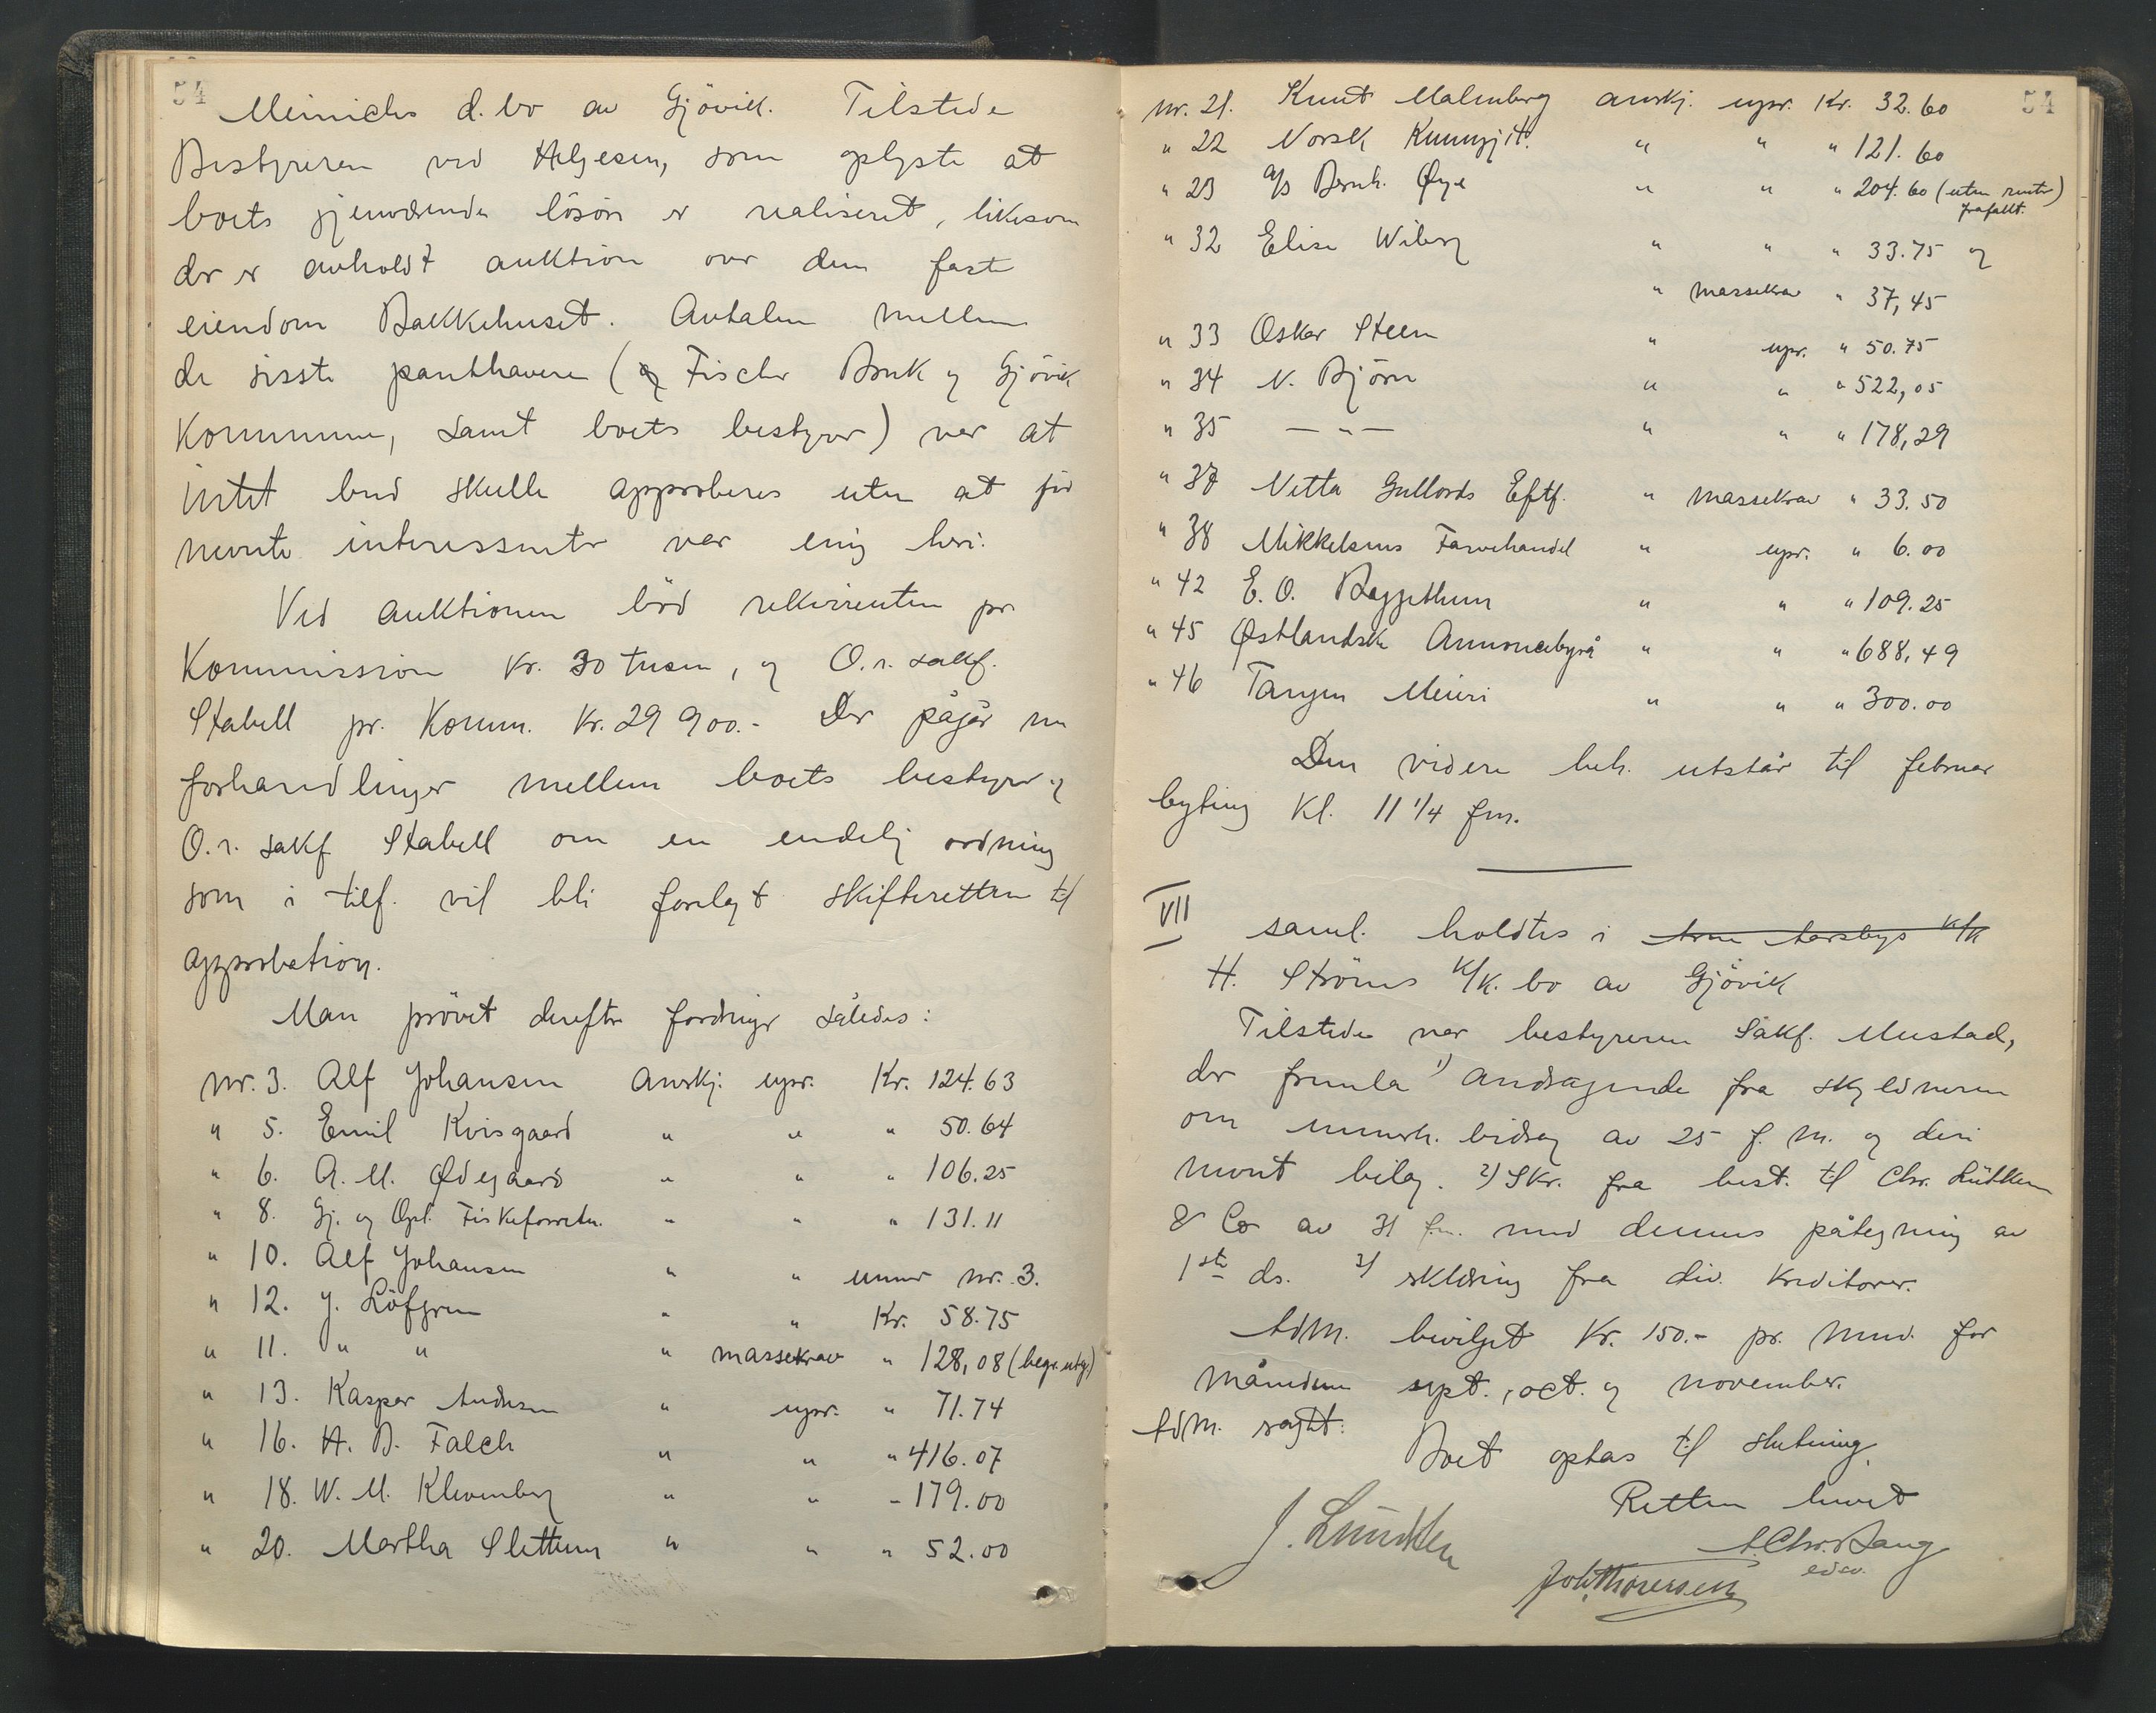 54
Meinichs d. bo av Gjövik. Tilstede
Bestyreren ved Helgesen, som oplyste at
boets gjenværende lösöre er realiseret, likesom
der er avholdt auktion over den faste
eiendom Bakkehuset. Avtalen mellem
de sisste panthavere (Fischer Bruk og Gjövik
Kommune, samt boets bestyrer) var at
intet bud skulle approberes uten at før
nevnte interessenter var enig heri.
Ved auktionen böd rekvirenten pr.
Kommission kr. 30 tusen, og O.r. sakf.
Stabell pr. Komm. kr. 29 900.- Der pågår nu
forhandlinger mellem boets bestyrer og
O.r. sakf Stabell om en endelig ordning
som i tilf. vil bli forelagt skifteretten til
approbation.
Man prövet derefter fordringer således:
nr. 3. Alf Johansen Anerkj. upr. Kr. 124.63
" 5. Emil Kvisgaard " " " 50.64
" 6. A. M. Ødegaard " " " 106.25
" 8. Gj. og Opl. Fiskeforretn. " " " 131.11
" 10. Alf Johansen " " under nr. 3.
" 12. J. Löfgren " " Kr. 58.75
" 11. " " " massekrav " 128,08 (begr. utg.)
" 13. Kasper Andersen " upr. " 71.74
" 16. H. B. Falch " " " 416.07
" 18. W. M. Klevenberg " " - 179.00
" 20. Martha Slettum " " " 52.00
54
nr. 21. Knut Malmberg anerkj. upr. Kr. 32.60
" 22 Norsk " " " 121.60
" 23 A/S Bernh. Øye " " " 204.60 (uten renter)
frafallt.
" 32 Elise Wiberg " " " 33.75 og
" massekrav " 37,45
" 33 Oskar Steen " upr. " 50.75
" 34 N. Björn " " " 522,05
" 35 — " — " " " 178,29
" 37 Netta Gullords Eftf. " massekrav " 33.50
" 38 Mikkelsens Farvehandel " upr. " 6.00
" 42 E. O. Baggethun " " " 109.25
" 45 Østlandske Annoncebyrå " " " 688,49
" 46 Tangen Meieri " " " 300.00
Den videre beh. utstår til februar
byting kl. 11 1/4 fm.
VII
saml. holdtes i
H. Ströms k/k. bo av Gjövik
Tilstede var bestyreren Sakf. Mustad,
der fremla 1) andragende fra skyldneren
om underh. bidrag av 25 f. m. og deri
nevnt bilag. 2) Skr. fra best. til Chr. Lütken
& Co av 31 f.m. med dennes påtegning av
1ste ds. 3) erklæring fra div. Kreditorer.
Adm. bevilget Kr. 150.- pr. mnd. for
måneden sept., oct. og november.
Adm. sagt:
Boet optas til slutning.
Retten hevet
J. Lundsten
A. Chr. Bang
edsv.
Joh. Thoresen